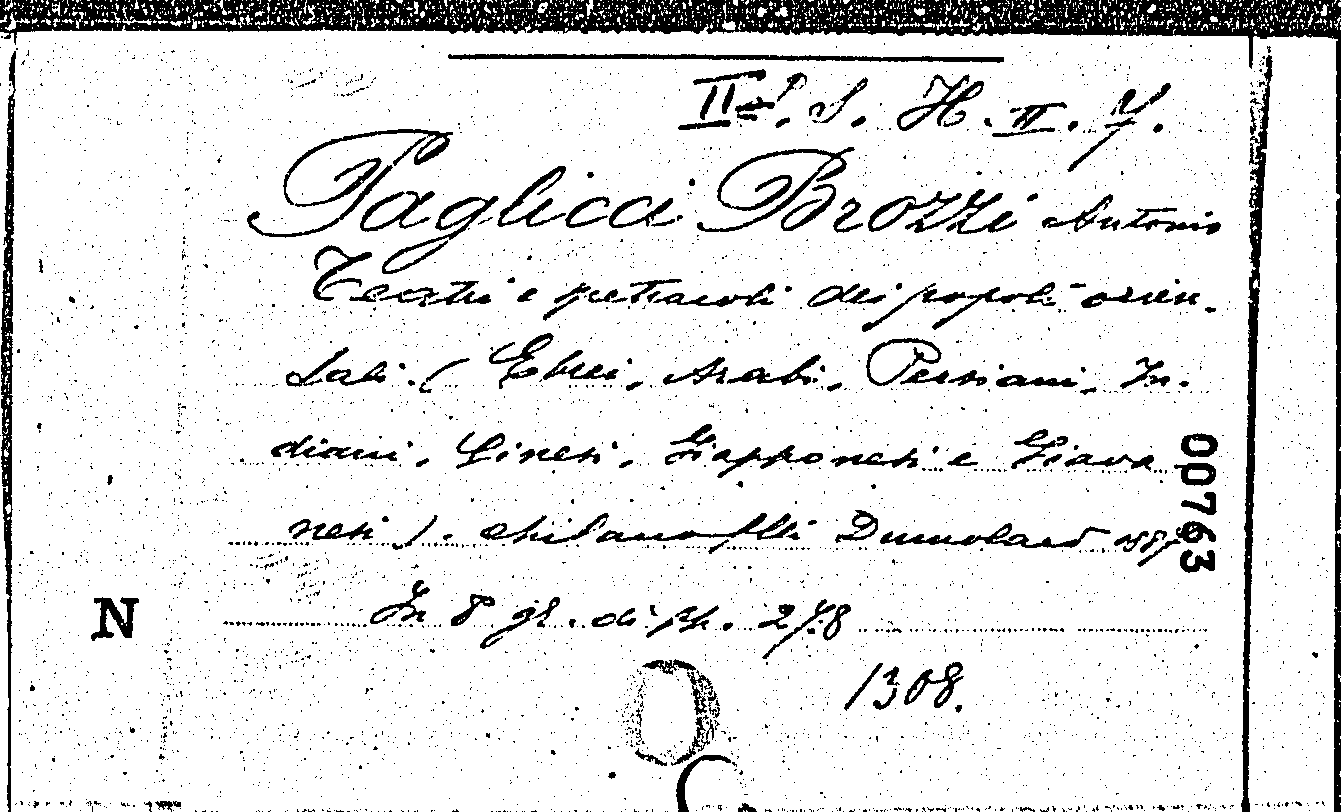 II S. H. II. 7.
Paglicci Brozzi Antonio
Teatri e spettacoli dei popoli orien-
tali. (Ebrei, Arabi, Persiani, In-
diani, Cinesi, Giapponesi e Giava
nesi). Milano flli Dumolard 1887
In 8 gr. di pp. 278
1308.
00763
N